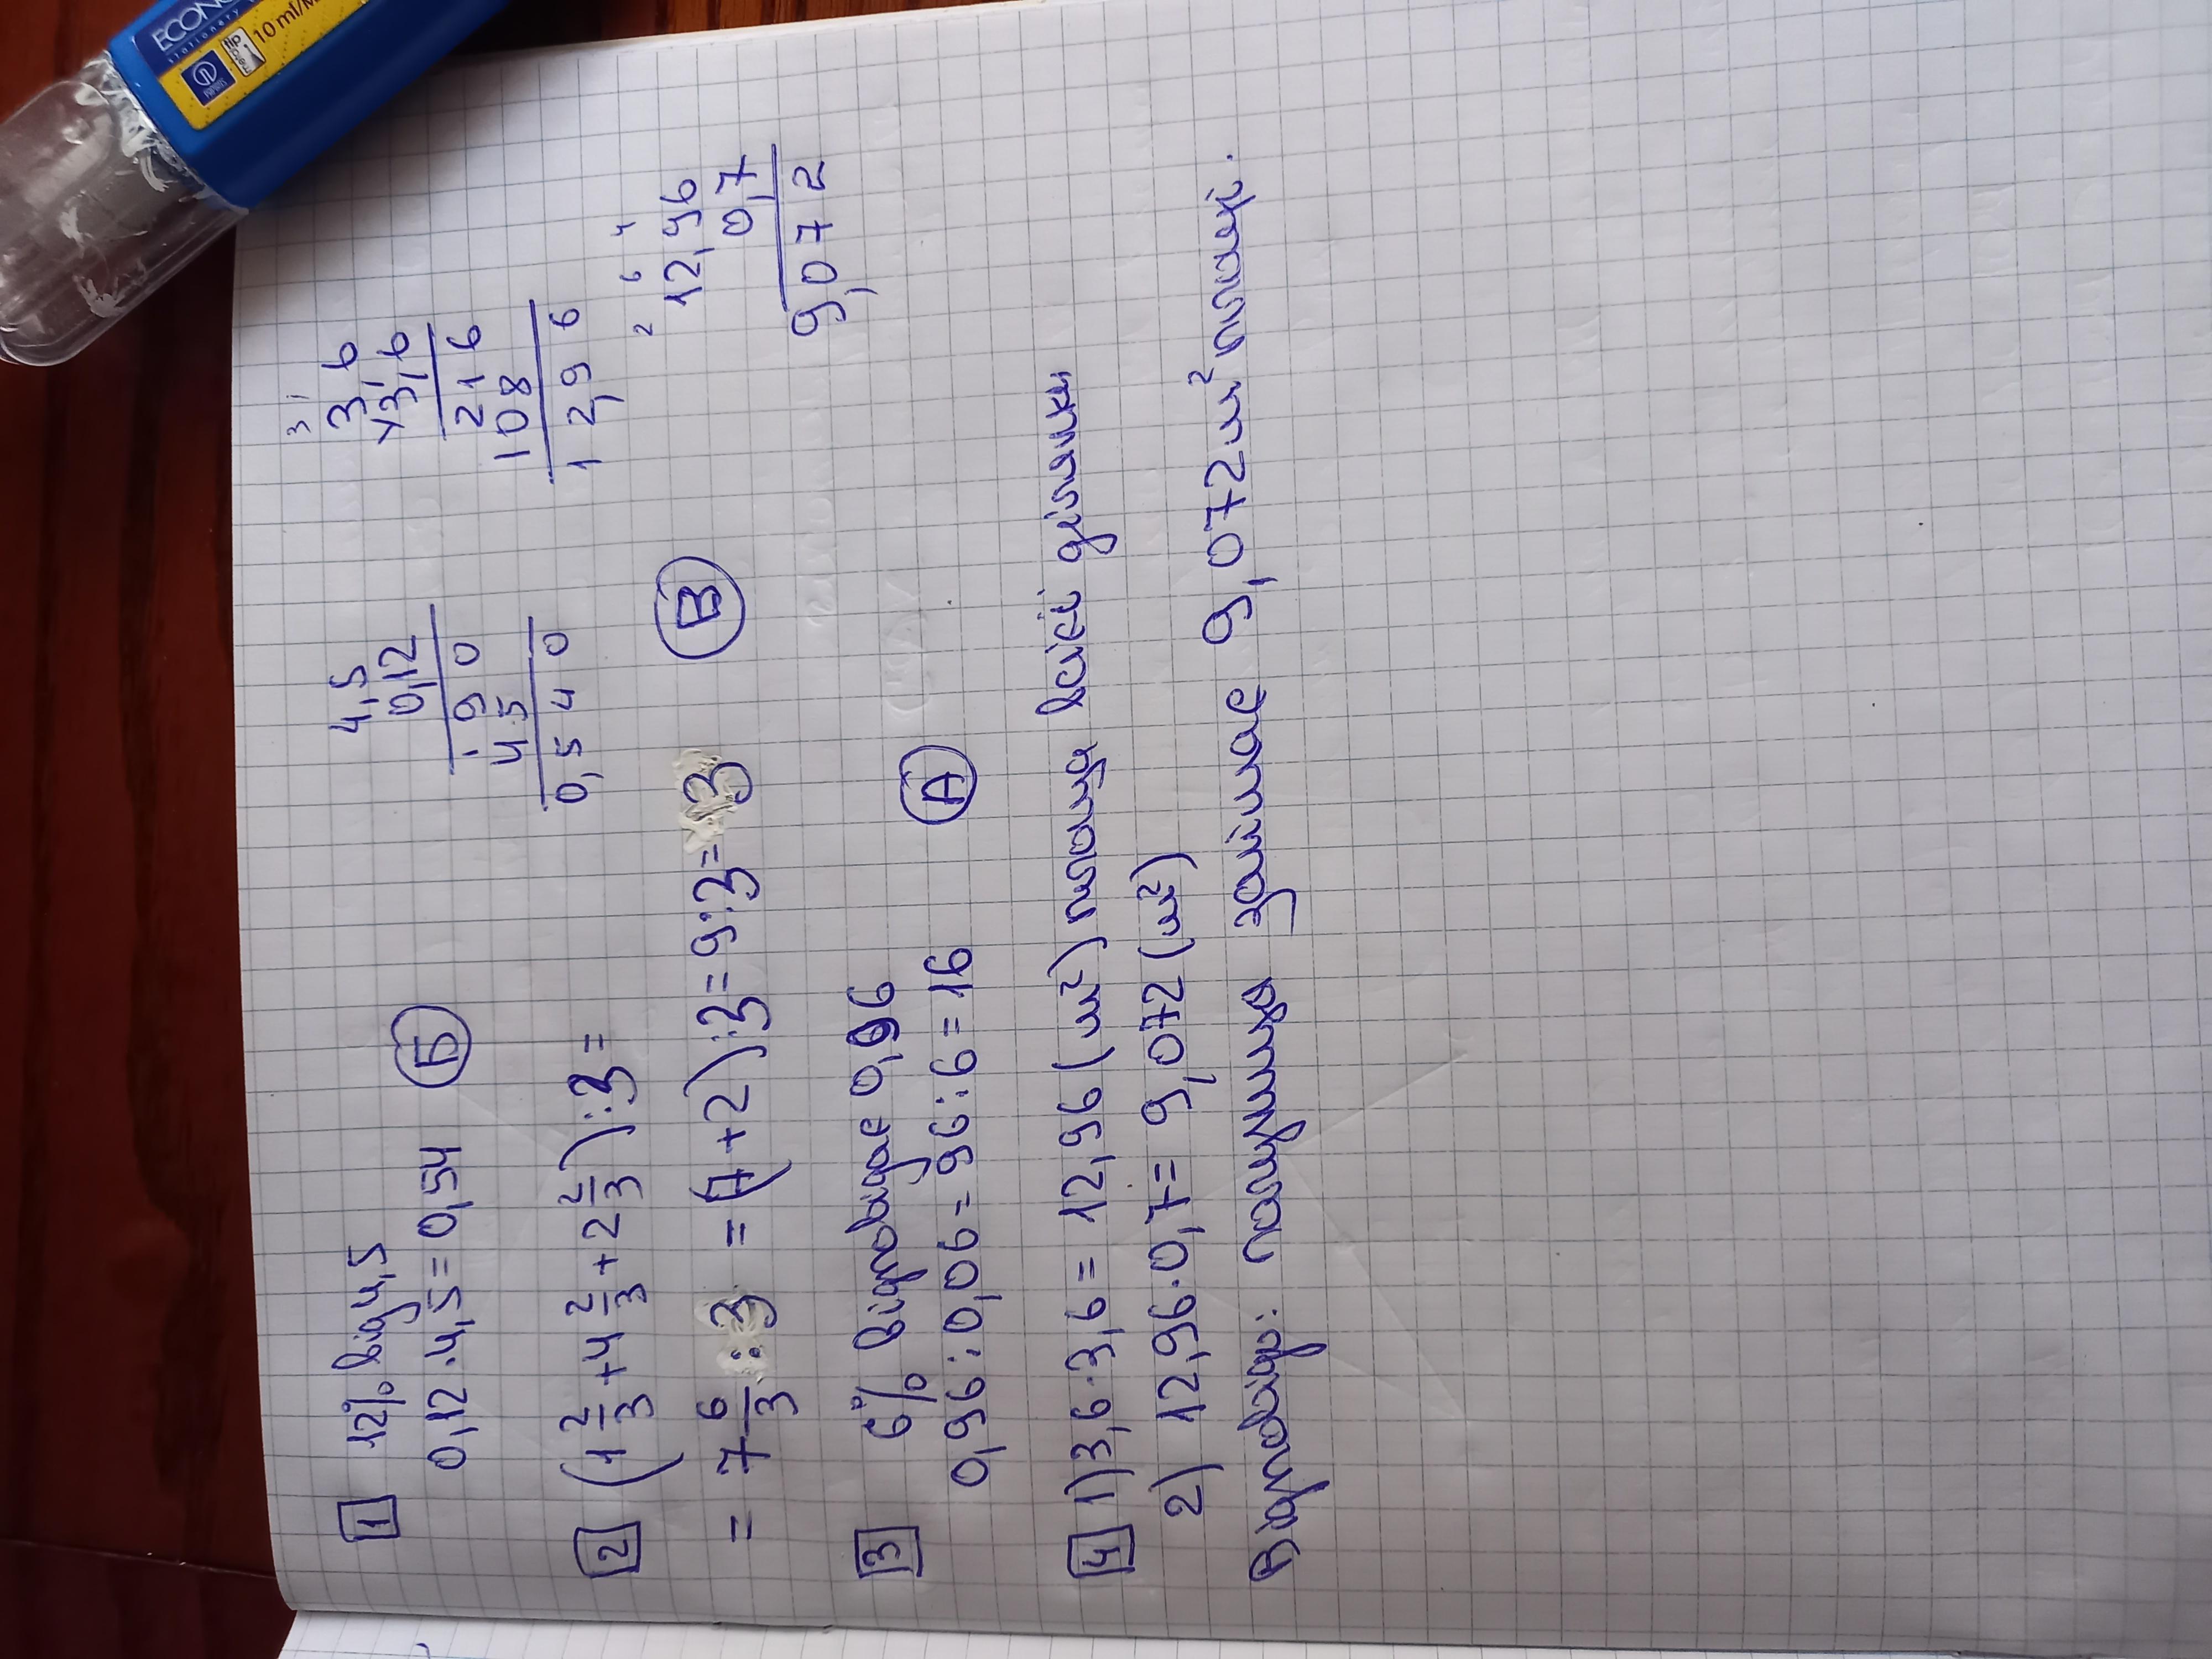 ECONO
stationery
10 ml/м
1 12% від 4,5
0,12·4,5=0,54 Б
4,5
0,12
90
45
0,540
3 1
3 6
×3,6
216
108
12,96
2 (1 2/3+4 2/3+2 2/3):3=
=7 6/3:3 =(7+2):3=9:3=3 В
2 6 4
12,96
0,7
9,072
3 6% відповідає 0,96
0,96:0,06=96:6=16 А
4 1)3,6·3,6=12,96(м²) площа всієї ділянки
2) 12,96·0,7=9,072(м²)
Відповідь: займає 9,072м² площі.